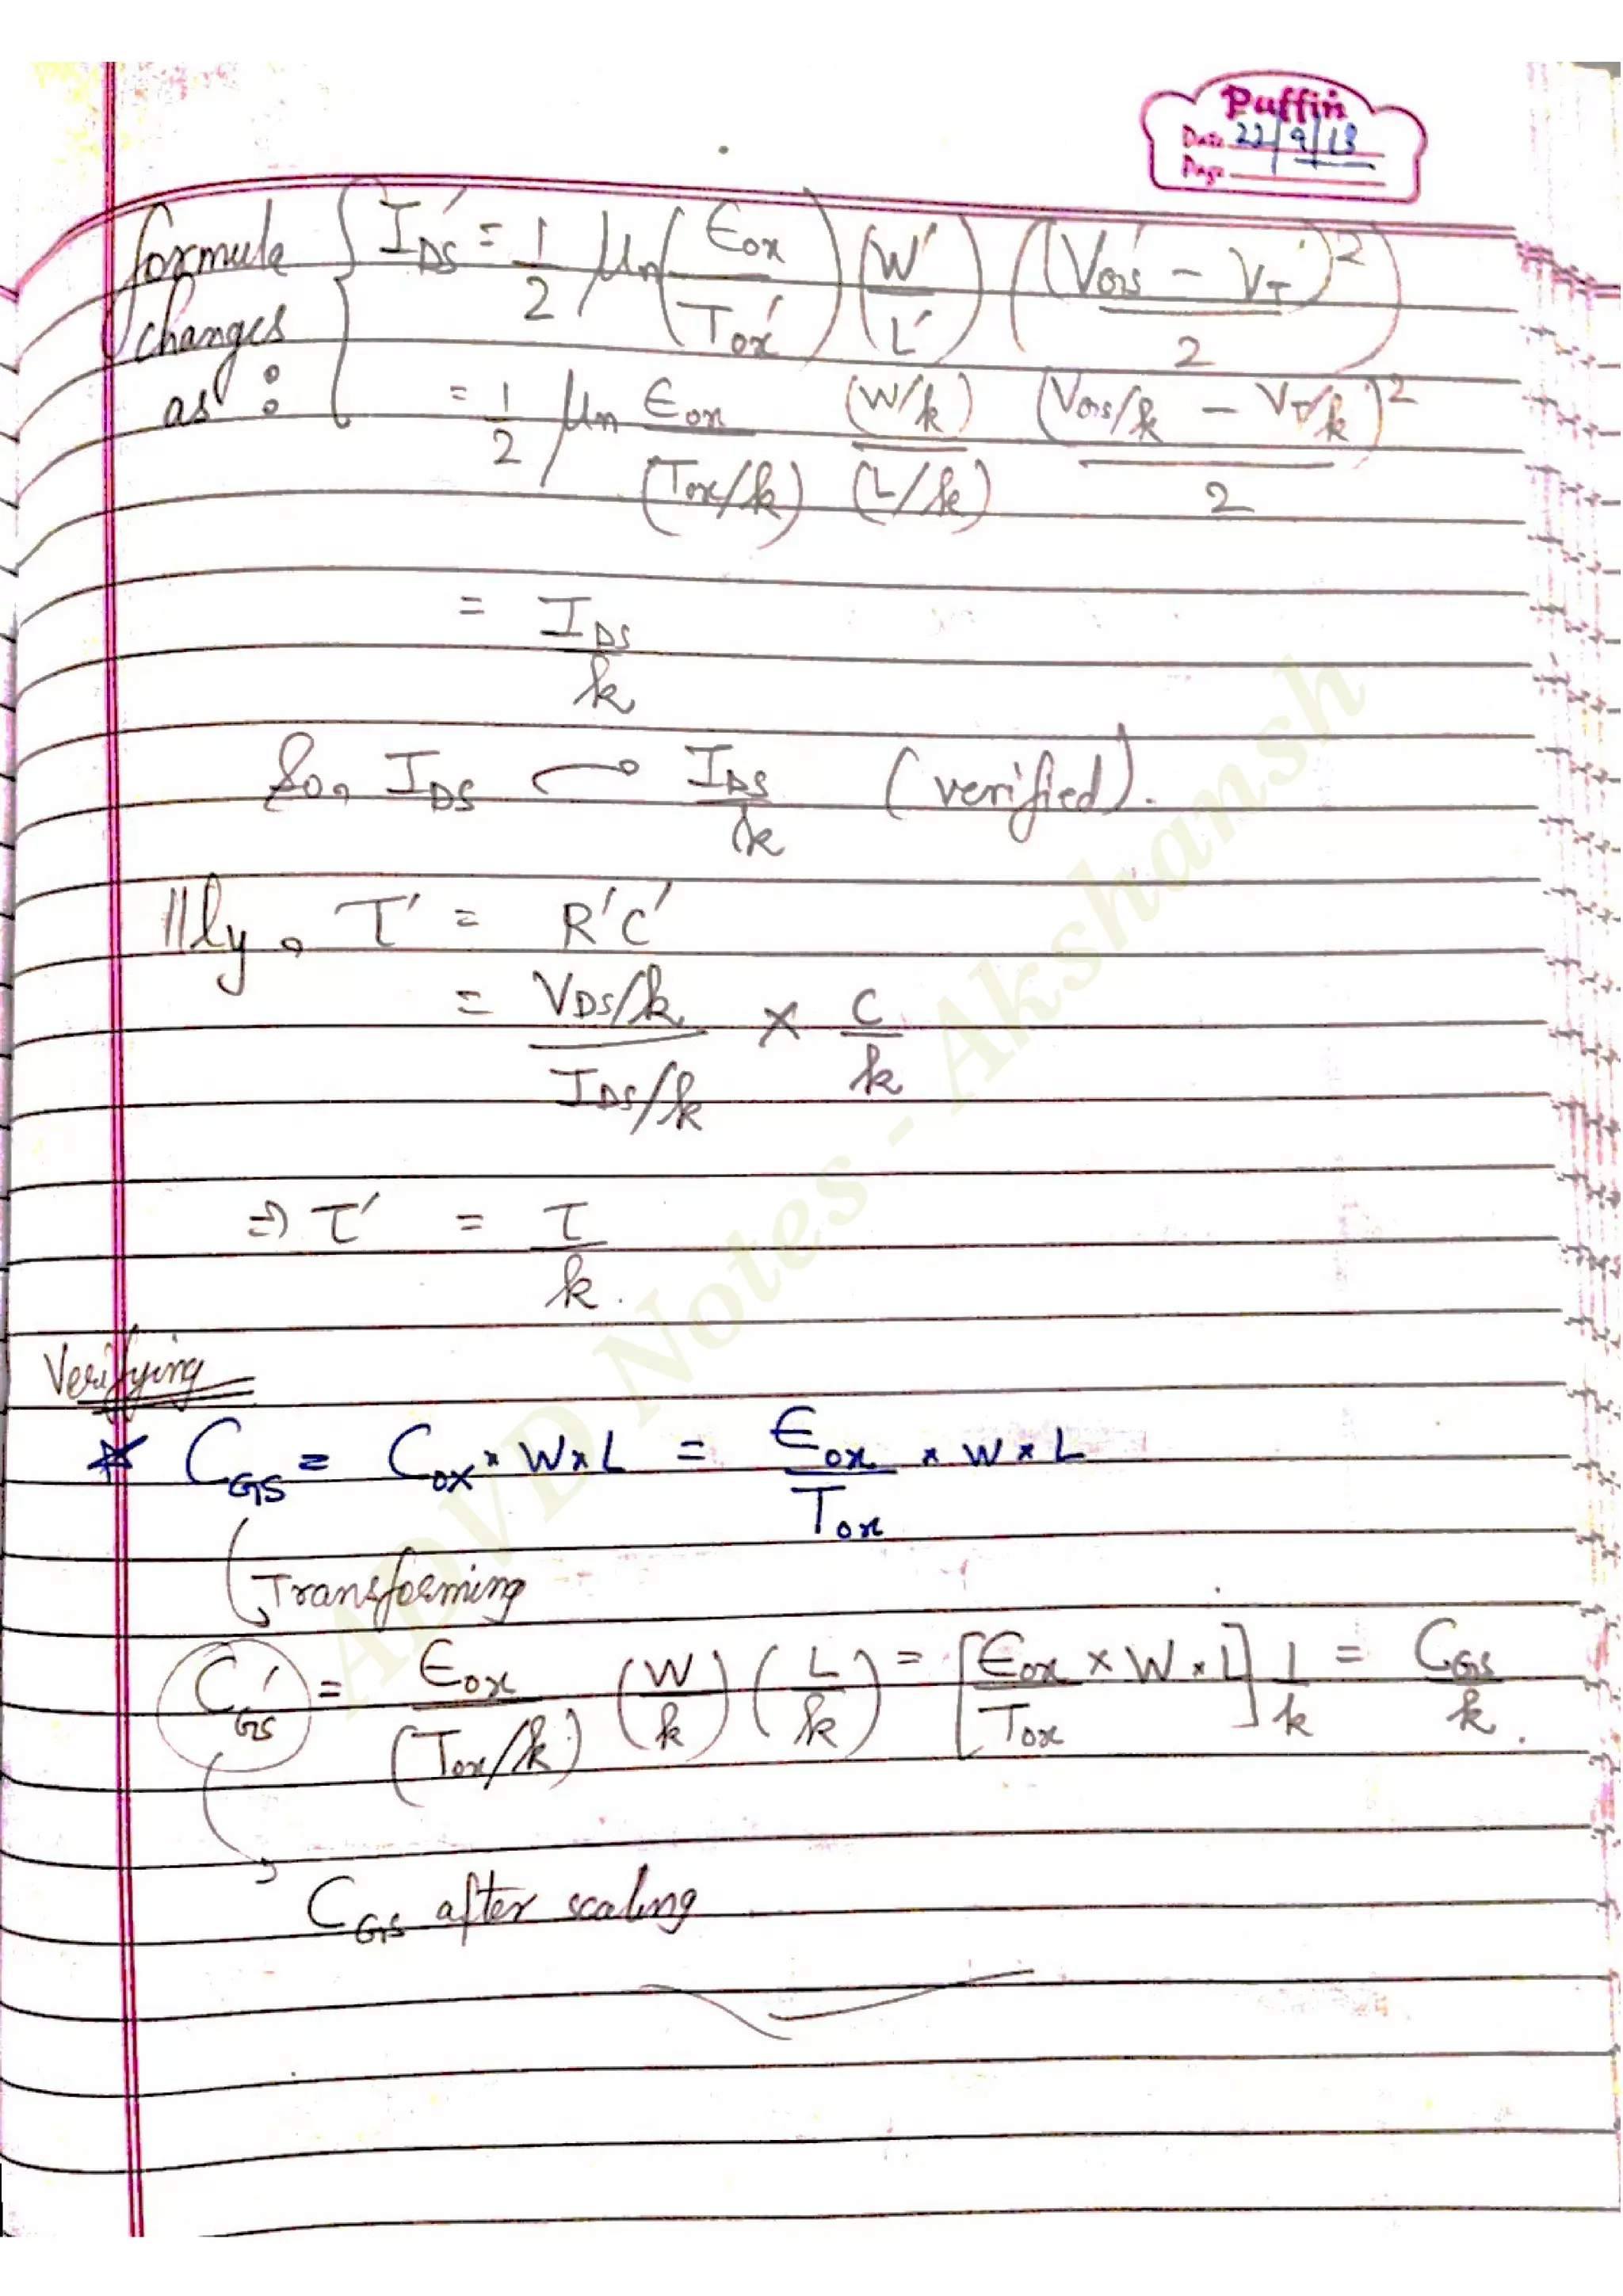 Puffin
Date 22/9/18
Page
formule changes as :
I'DS = 1/2 μn (Єox / Tox') (W' / L') ((VGS' - VT')² / 2)
= 1/2 μn Єox / (Tox/k) (W/k) / (L/k) (VGS/k - VT/k)² / 2
= IDS / k
So, IDS → IDS / k (verified).
llly, τ' = R'C'
= (VDS/k) / (IDS/k) × C / k
⇒ τ' = τ / k.
Verifying
* CGS = Cox × W × L = Єox / Tox × W × L
Transforming
C'GS = Єox / (Tox/k) (W/k) (L/k) = [Єox / Tox × W × L] 1/k = CGS / k.
CGS after scaling
ADVD Notes - Akshansh